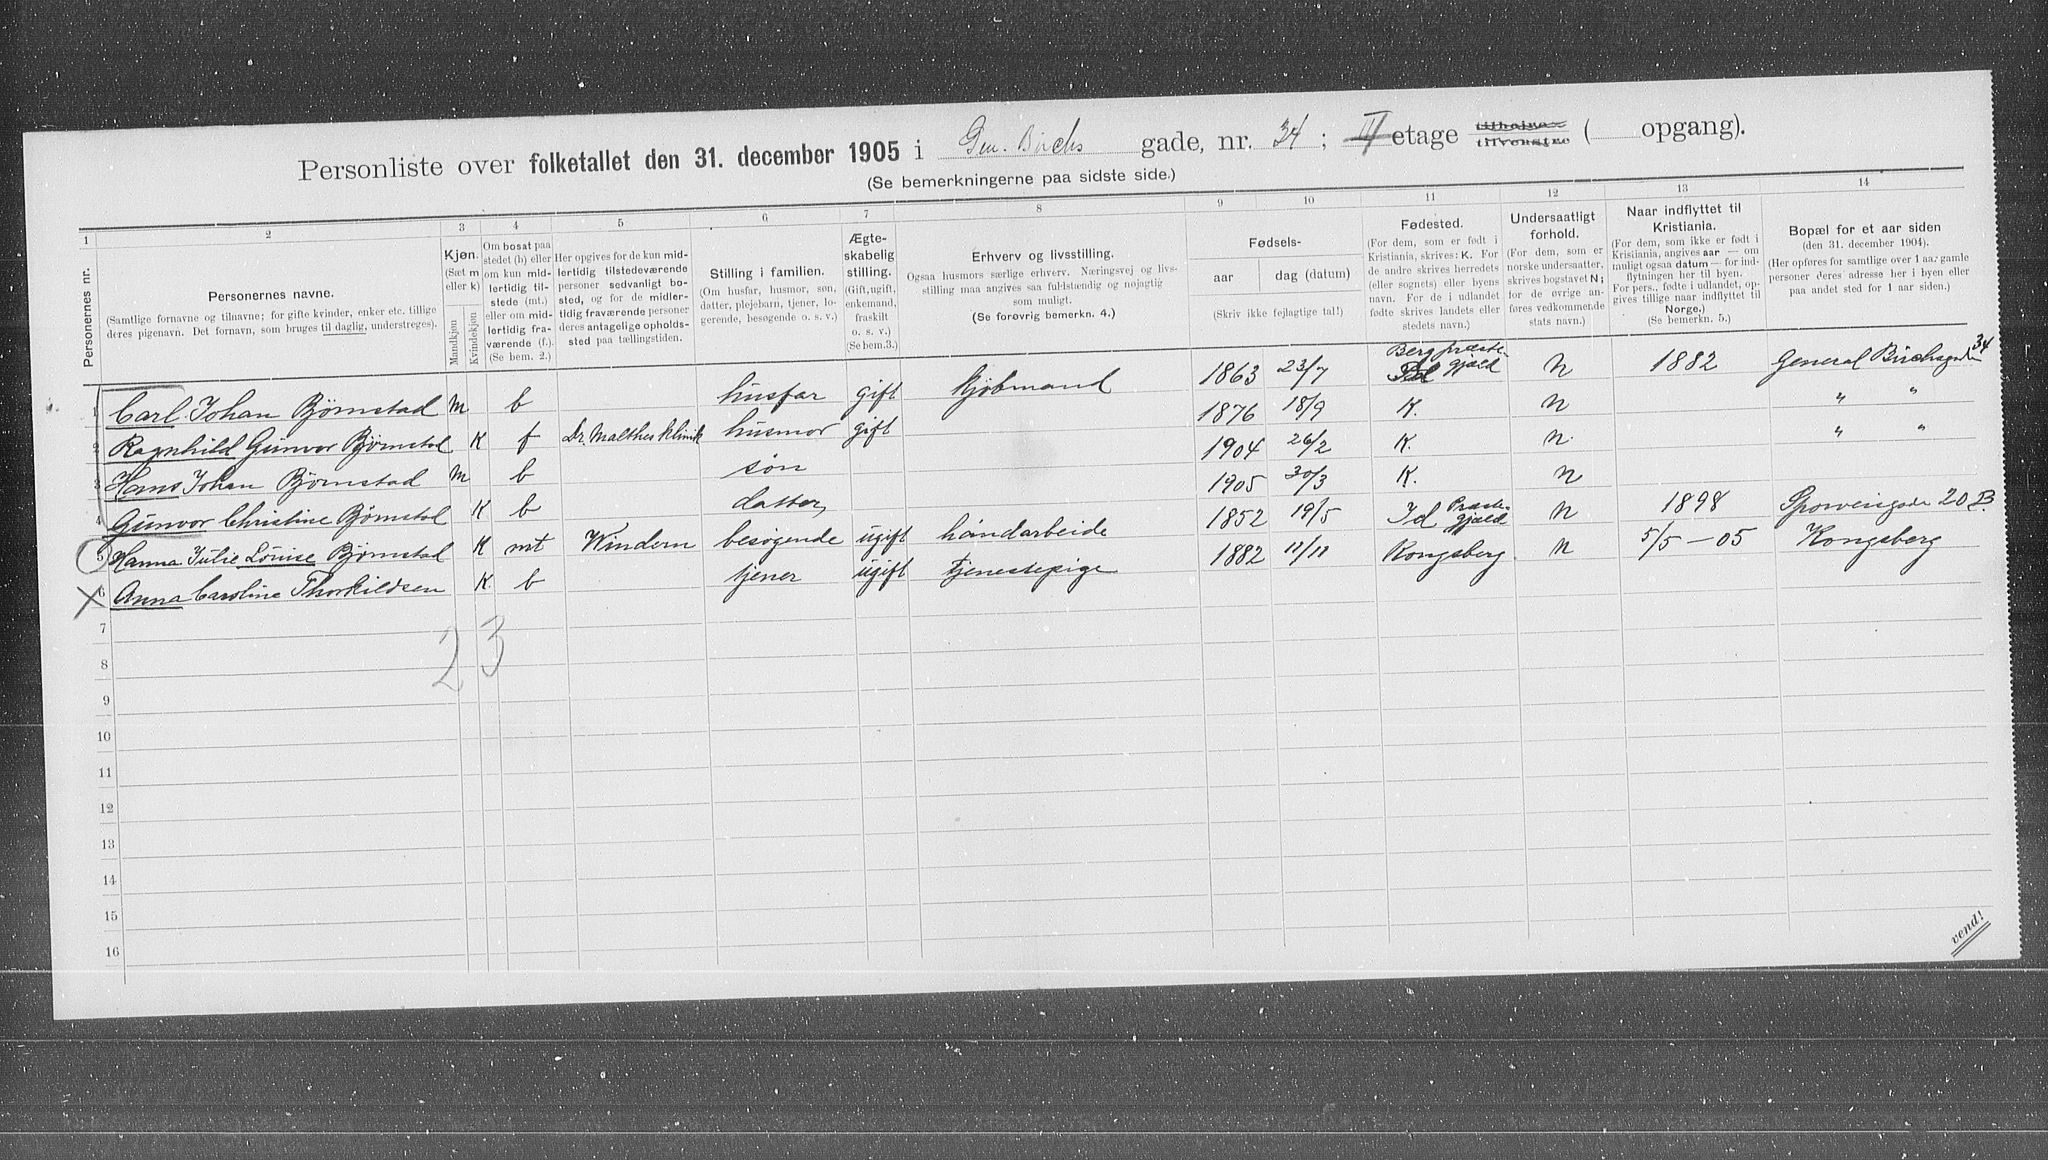 Personliste over folketallet den 31. december 1905 i Gen. Birchs gade, nr. 34; II etage tilhøire tilvenstre ( opgang).
(Se bemerkningerne paa sidste side.)
1 2 3 4 5 6 7 8 9 10 11 12 13 14
Personernes nr.
Personernes navne.
(Samtlige fornavne og tilnavne; for gifte kvinder, enker etc. tillige
deres pigenavn. Det fornavn, som bruges til daglig, understreges).
Kjøn.
(Sæt m
eller k)
Mandkjøn
Kvindekjøn
Om bosat paa
stedet (b) eller
om kun mid-
lertidig til-
stede (mt.)
eller om mid-
lertidig fra-
værende (f.).
(Se bem. 2.)
Her opgives for de kun mid-
lertidig tilstedeværende
personer sedvanligt bo-
sted, og for de midler-
tidig fraværende personer
deres antagelige opholds-
sted paa tællingstiden.
Stilling i familien.
(Om husfar, husmor, søn,
datter, plejebarn, tjener, lo-
gerende, besøgende o. s. v.)
Ægte-
skabelig
stilling.
(Gift, ugift,
enkemand,
fraskilt
o. s. v.)
(Se bem.3.)
Erhverv og livsstilling.
Ogsaa husmors særlige erhverv. Næringsvej og livs-
stilling maa angives saa fuldstændig og nøjagtig
som muligt.
(Se forøvrig bemerkn. 4.)
Fødsels-
aar
dag (datum)
(Skriv ikke fejlagtige tal!)
Fødested.
(For dem, som er født i
Kristiania, skrives: K. For
de andre skrives herredets
(eller sognets) eller byens
navn. For de i udlandet
fødte skrives landets eller
stedets navn.)
Undersaatligt
forhold.
(For dem, som er
norske undersaatter,
skrives bogstavet N;
for de øvrige an-
føres vedkommende
stats navn.)
Naar indflyttet til
Kristiania.
(For dem, som ikke er født i
Kristiania, angives aar — om
muligt ogsaa datum — for ind-
flytningen her til byen.
For pers., fødte i udlandet, op-
gives tillige naar indflyttet til
Norge.)
(Se bemerkn. 5.)
Bopæl for et aar siden
(den 31. december 1904).
(Her opføres for samtlige over 1 aar gamle
personer deres adresse her i byen eller
paa andet sted for 1 aar siden.)
1 Carl Johan Bjørnstad m b husfar gift kjøbmand 1863 23/7 Berg præste-gjæld N 1882 General Birchsgaden 34
2 Ragnhild Gunvor Bjørnstad K f Dr. Malthes klinik husmor gift 1876 18/9 K. N " "
3 Hans Johan Bjørnstad m b søn 1904 26/2 K. N. " "
4 Gunvor Christine Bjørnstad K b datter 1905 30/3 K. N
5 Hanna Julie Louise Bjørnstad K mt Windern besøgende ugift håndarbeide 1852 19/5 Id Præste-gjæld N 1898 Sporveisgade 20 B.
6 Anna Caroline Thorkildsen K b tjener ugift tjenestepige 1882 11/11 Kongsberg. N 5/5 - 05 Kongsberg
7
23
8
9
10
11
12
13
14
15
16
vend!